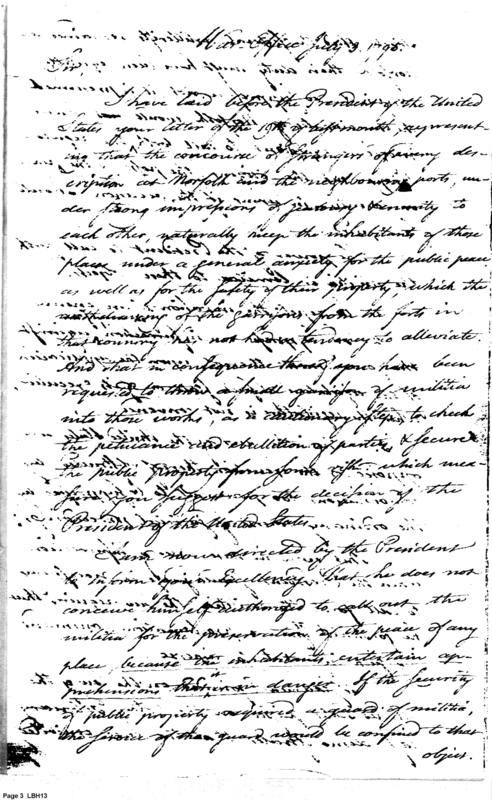 War Office July 9, 179
Sir,
I have laid before the President of the United
States your letter of the 19th of last month, represent-
ing that the concourse of strangers of every des-
cription at Norfolk and the neighbouring ports, un-
der strong impressions of jealousy & enmity to
each other, naturally keep the inhabitants of those
places under a general anxiety for the public peace
as well as for the safety of their property, which the
withdrawing of the garrisons from the forts in
that country has not had a tendency to alleviate.
And that in consequence you have been
requested to throw a small garrison of militia
into those works, as a cautionary step to check
the petulance and ebullition of parties & secure
the public property which mea-
sure you suggest for the decision of the
President of the United States.
I am now directed by the President
to inform your Excellency that he does not
conceive himself authorized to call out the
militia for the preservation of the peace of any
place, because the inhabitants entertain ap-
prehensions that it is in danger. If the security
of public property required a guard of militia,
the service of that guard would be confined to that
object.
Page 3 LBH13